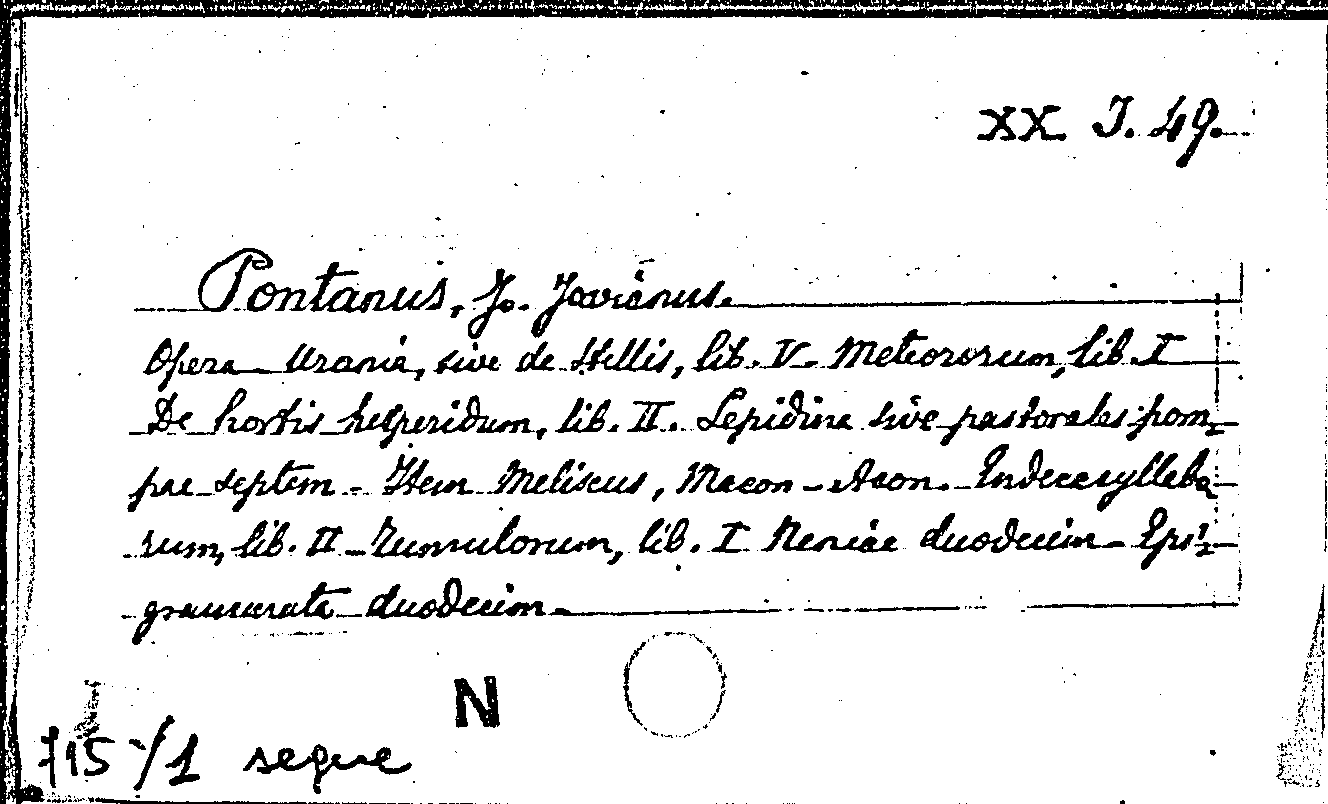 XX. J. 49.
Pontanus, Jo. Jovianus.
Opera Urania, sive de Stellis, lib. V. Meteororum, lib. I
De hortis hesperidum, lib. II. Lepidina sive pastorales pom-
pae septem - Item Meliseus, Maeon - Acon. Endecasyllaba-
rum, lib. II - Tumulorum, lib. I Neniae duodecim - Epi-
grammata duodecim -
N
715/1 segue